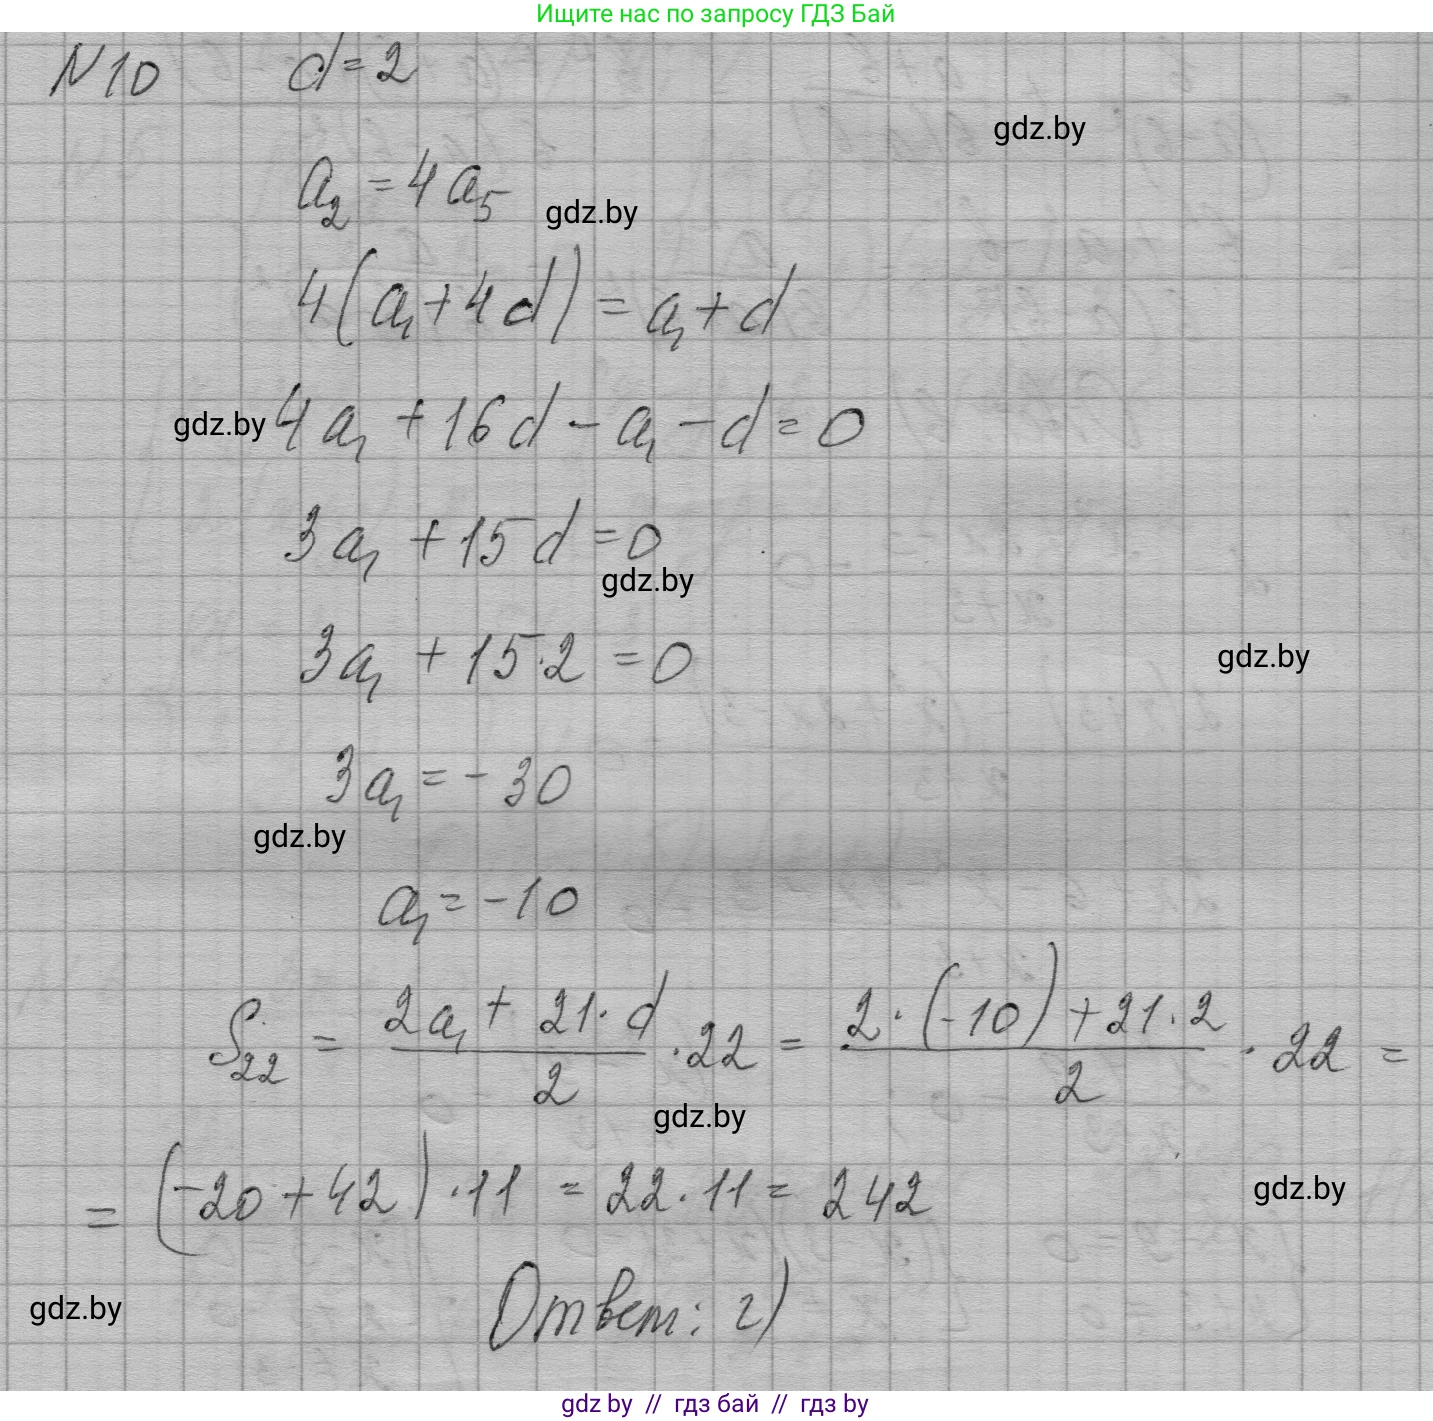 Ищите нас по запросу ГДЗ Бай
N10 d=2
gdz.by
a₂ = 4a₅
gdz.by
4(a₁+4d) = a₁+d
gdz.by
4a₁ + 16d - a₁ - d = 0
3a₁ + 15d = 0
gdz.by
3a₁ + 15·2 = 0
gdz.by
3a₁ = -30
gdz.by
a₁ = -10
S₂₂ = (2a₁ + 21·d)/2 · 22 = (2·(-10)+21·2)/2 · 22 =
gdz.by
= (-20+42)·11 = 22·11 = 242
gdz.by
Ответ: г)
gdz.by
gdz.by // гдз бай // гдз by